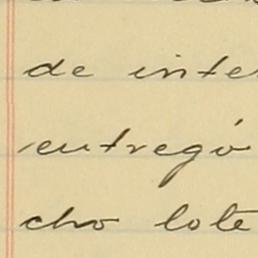 de inter
entregó
cho lote